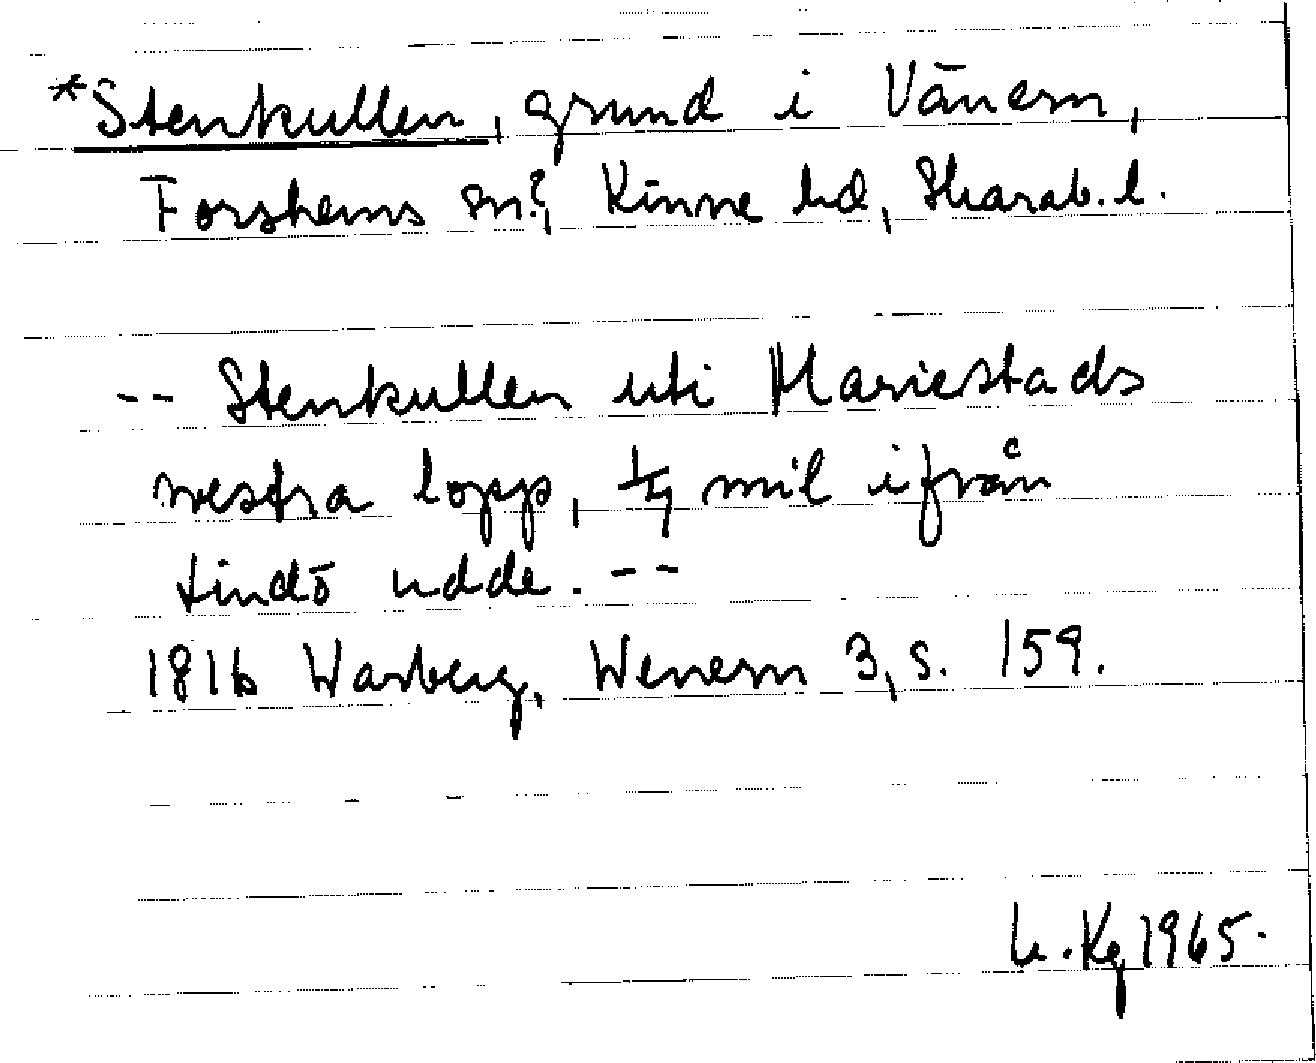 *Stenkullen, grund i Vänern,
Forshems sn?, Kinne hd, Skarab. l.
-- Stenkullen uti Mariestads
westra lopp, 1/4 mil ifrån
Lindö udde. --
1816 Warberg, Wenern 3, s. 159.
Kg 1965.